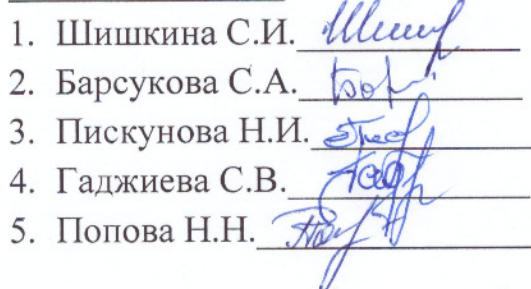 1. Шишкина С.И.
2. Барсукова С.А.
3. Пискунова Н.И.
4. Гаджиева С.В.
5. Попова Н.Н.